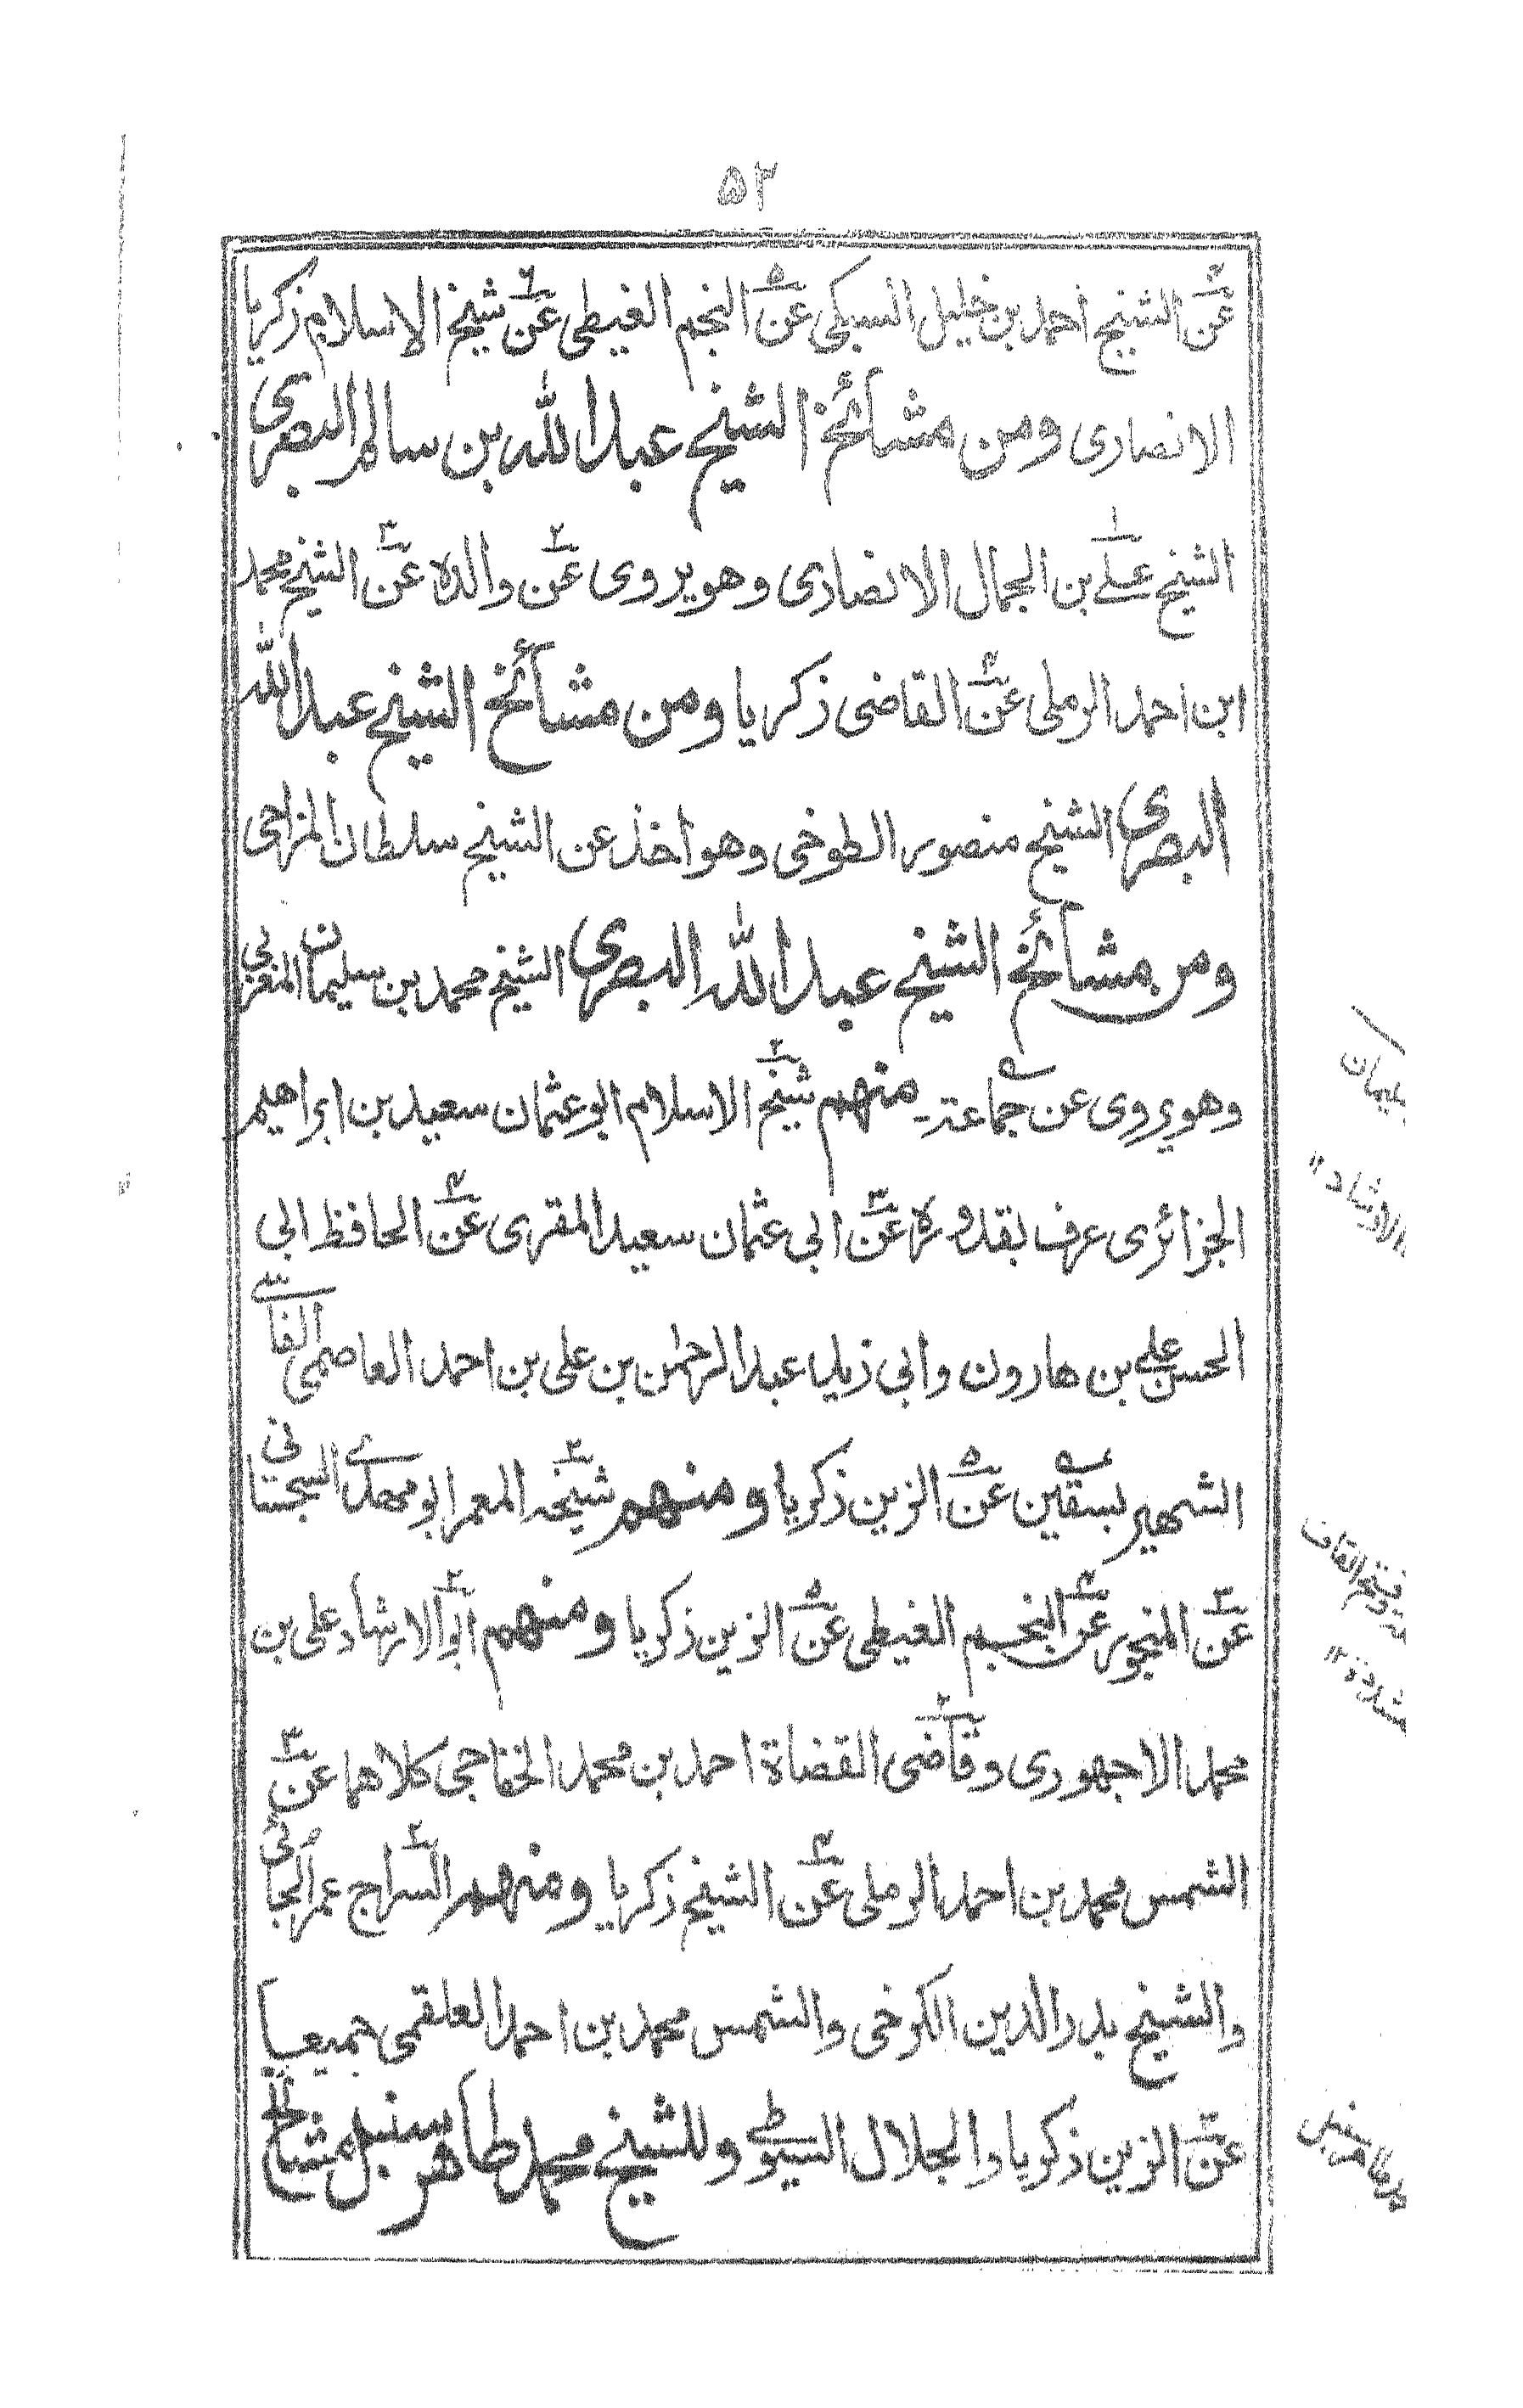 ۵۲
عن الشيخ احمد بن خليل السبكى عن النجم الغيطى عن شيخ الاسلام زكريا
الانصارى ومن مشائخ الشيخ عبد الله بن سالم البصرى
الشيخ على بن الجمال الانصارى وهو يروى عن والده عن الشيخ محمد
ابن احمد الرملى عن القاضى زكريا ومن مشائخ الشيخ عبد الله
البصرى الشيخ منصور الطوخى وهو اخذ عن الشيخ سلطان المزاحى
ومن مشائخ الشيخ عبد الله البصرى الشيخ محمد بن سليمان المغربى
وهو يروى عن جماعة منهم شيخ الاسلام ابو عثمان سعيد بن ابراهيم
الجزائرى عرف بقدوره عن ابى عثمان سعيد المقرى عن الحافظ ابى
الحسن على بن هارون وابى زيد عبد الرحمن بن على بن احمد العاصمى الفاسى
الشهير بسقين عن الزين زكريا ومنهم شيخه المعمر ابو مهدى السجستانى
عن المنجور عن النجم الغيطى عن الزين زكريا ومنهم ابو الارشاد على بن
محمد الاجهورى وقاضى القضاة احمد بن محمد الخفاجى كلاهما عن
الشمس محمد بن احمد الرملى عن الشيخ زكريا ومنهم السراج عمر الجائى
والشيخ بدر الدين الكرخى والشمس محمد بن احمد العلقمى جميعا
عن الزين زكريا والجلال السيوطى وللشيخ محمد طاهر سنبل مشائخ